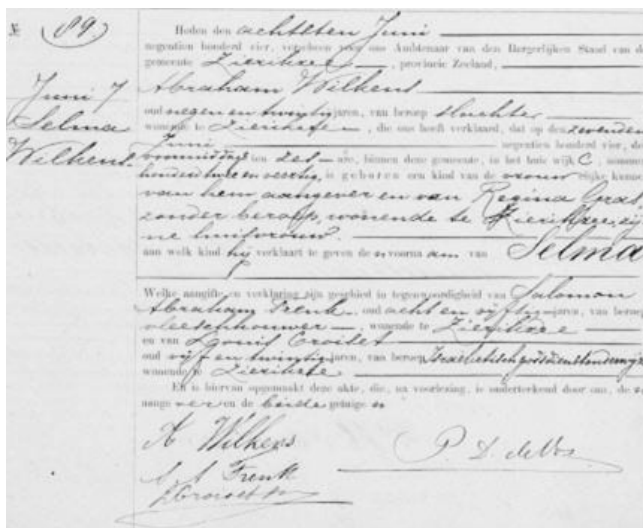 № 89
Juni 7
Selma
Wilhens
Heden den achtsten Juni
negentien honderd vier, verscheen voor ons Ambtenaar van den Burgerlijken Stand van de
gemeente Zierikzee, provincie Zeeland,
Abraham Wilhens
oud negen en twintig jaren, van beroep slachter
wonende te Zierikzee, die ons heeft verklaard, dat op den zevenden
Juni negentien honderd vier, des
voormiddags ten zes ure, binnen deze gemeente, in het huis wijk C, nommer
honderd twee en veertig, is geboren een kind van de vrouwelijke kunne
van hem aangever en van Regina Gras,
zonder beroep, wonende te Zierikzee, zij
ne huisvrouw.
aan welk kind hij verklaart te geven de n voorna am van Selma
Welke aangifte en verklaring zijn geschied in tegenwoordigheid van Salomon
Abraham Frenk, oud acht en vijftig jaren, van beroep
vleeschhouwer, wonende te Zierikzee
en van Louis Croiset
oud vijf en twintig jaren, van beroep Israelietisch godsdienstonderwijzer
wonende te Zierikzee
En is hiervan opgemaakt deze akte, die, na voorlezing, is onderteekend door ons, de
aange ver en de beide getuige n
A Wilhens
P. D. de Vos
S A Frenk
L Croiset